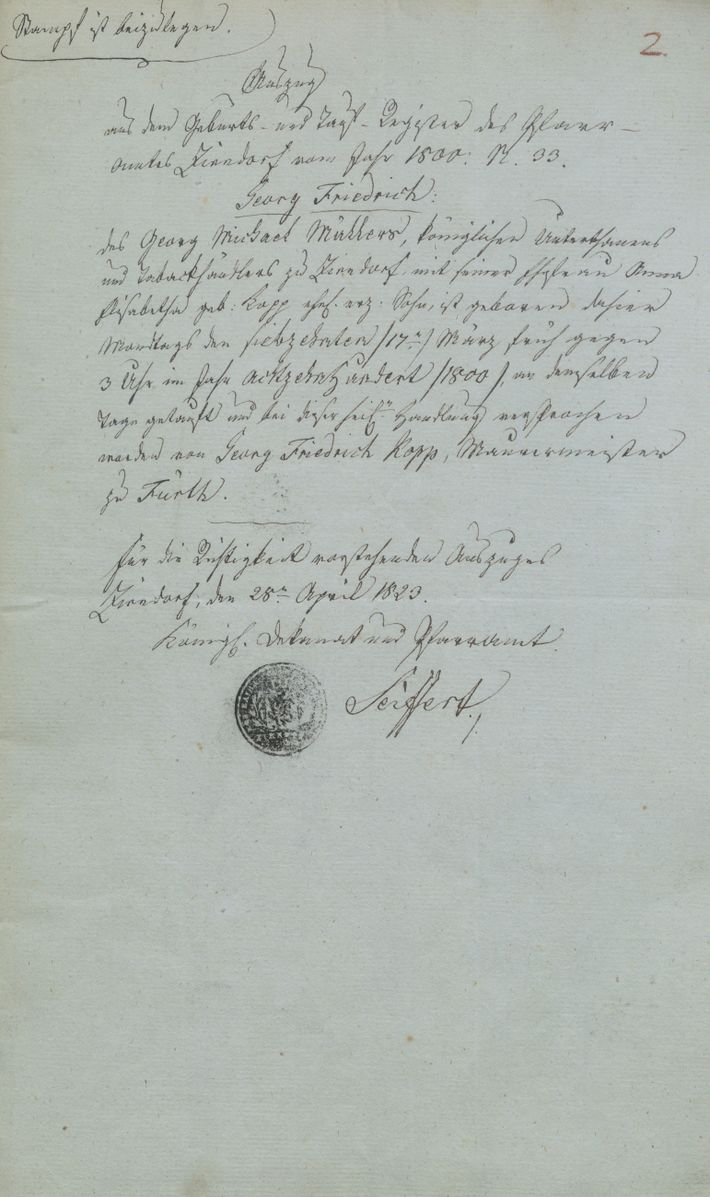 Stempf ist beizulegen.
2
Auszug
aus dem Geburts- und Tauf-Register des Pfarr-
amtes Zirndorf vom Jahr 1800. N. 33.
Georg Friedrich:
des Georg Michael Müllers, königlichen Unterthanens
und Tabackhändlers zu Zirndorf mit seiner Ehefrau Anna
Elisabetha geb: Kopp ehel. erz. Sohn, ist geboren dahier
Montags den siebzehnten /17n/ März früh gegen
3 Uhr im Jahr achtzehnhundert /1800/, an demselben
Tage getauft und bei dieser heil. Handlung versprochen
worden von Georg Friedrich Kopp, Maurermeister
zu Fürth.
Für die Richtigkeit vorstehenden Auszuges
Zirndorf, den 28n April 1823.
Königl. Dekanat und Pfarramt.
Seiffert.